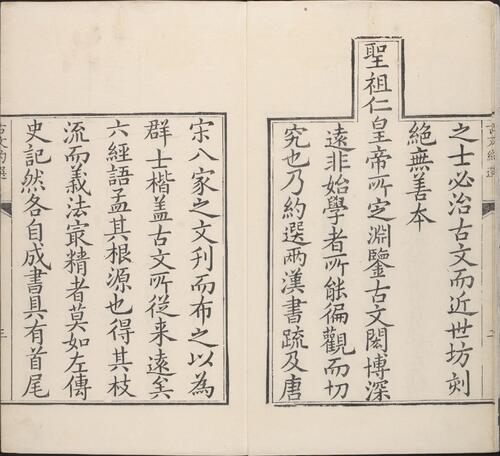 之士必治古文而近世坊刻
絶無善本
聖祖仁皇帝所定淵鑒古文閎博深
遠非始學者所能徧觀而切
究也乃約選兩漢書疏及唐
宋八家之文刋而布之以為
群士楷盖古文所從来遠矣
六經語孟其根源也得其枝
流而義法㝡精者莫如左傳
史記然各自成書具有首尾
古文約選
三